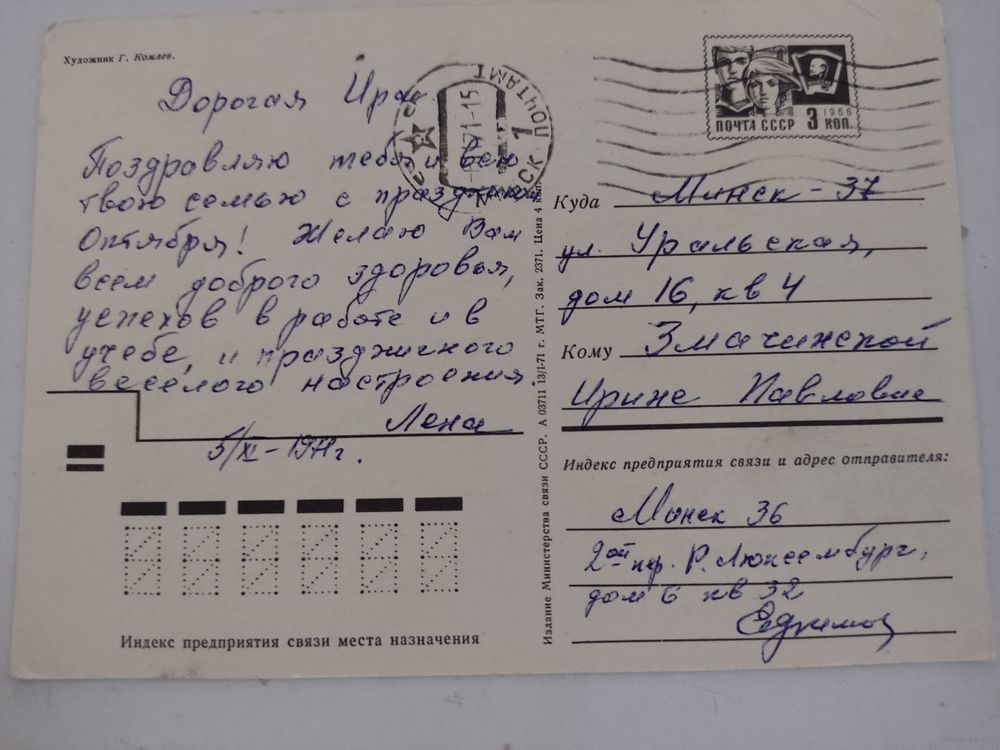 Художник Г. Комлев.
Дорогая Ира
Поздравляю тебя и всю
твою семью с праздником
Октября! Желаю Вам
всем доброго здоровья,
успехов в работе и в
учебе, и праздничного
веселого настроения.
Лена
5/XI-1971г.
Индекс предприятия связи места назначения
Издание Министерства связи СССР. А 03711 13/I-71 г. МТГ. Зак. 2371. Цена 4 коп.
ПОЧТАМТ
71-15
МИНСК 1
1966
ПОЧТА СССР 3 КОП.
Куда Минск-37
ул. Уральская,
дом 16, кв 4
Кому Змачинской
Ирине Павловне
Индекс предприятия связи и адрес отправителя:
Минск 36
2ой пер. Р. Люксембург,
дом 6 кв 32